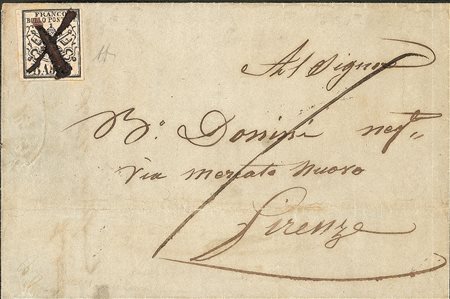 FRANCO
BOLLO POST
BAJ
Al Signor
B. Donini neg.
Via Mercato Nuovo
Firenze